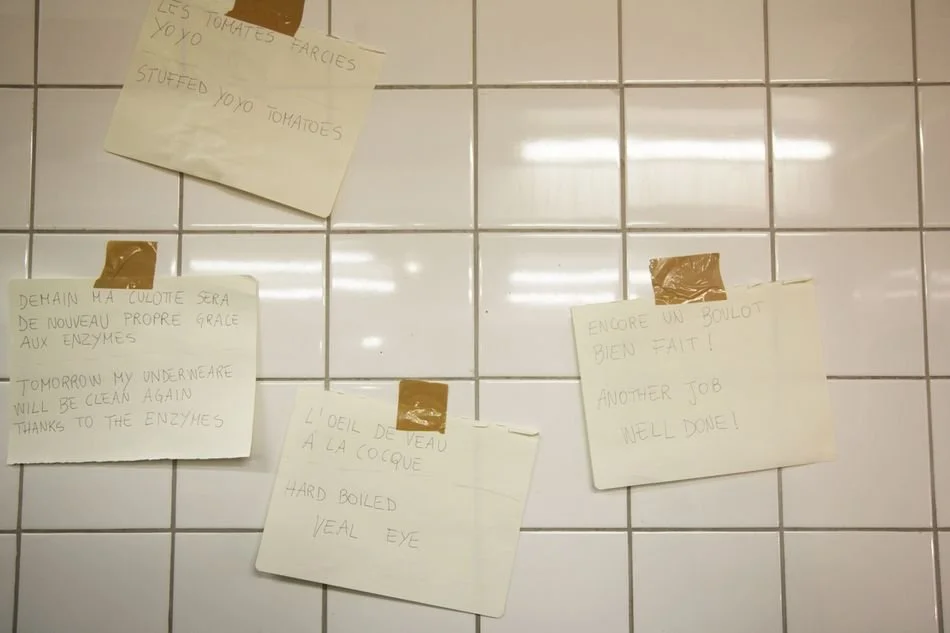 LES TOMATES FARCIES
YOYO
STUFFED YOYO TOMATOES
DEMAIN MA CULOTTE SERA
DE NOUVEAU PROPRE GRACE
AUX ENZYMES
TOMORROW MY UNDERWEARE
WILL BE CLEAN AGAIN
THANKS TO THE ENZYMES
L'OEIL DE VEAU
À LA COCQUE
HARD BOILED
VEAL EYE
ENCORE UN BOULOT
BIEN FAIT!
ANOTHER JOB
WELL DONE!